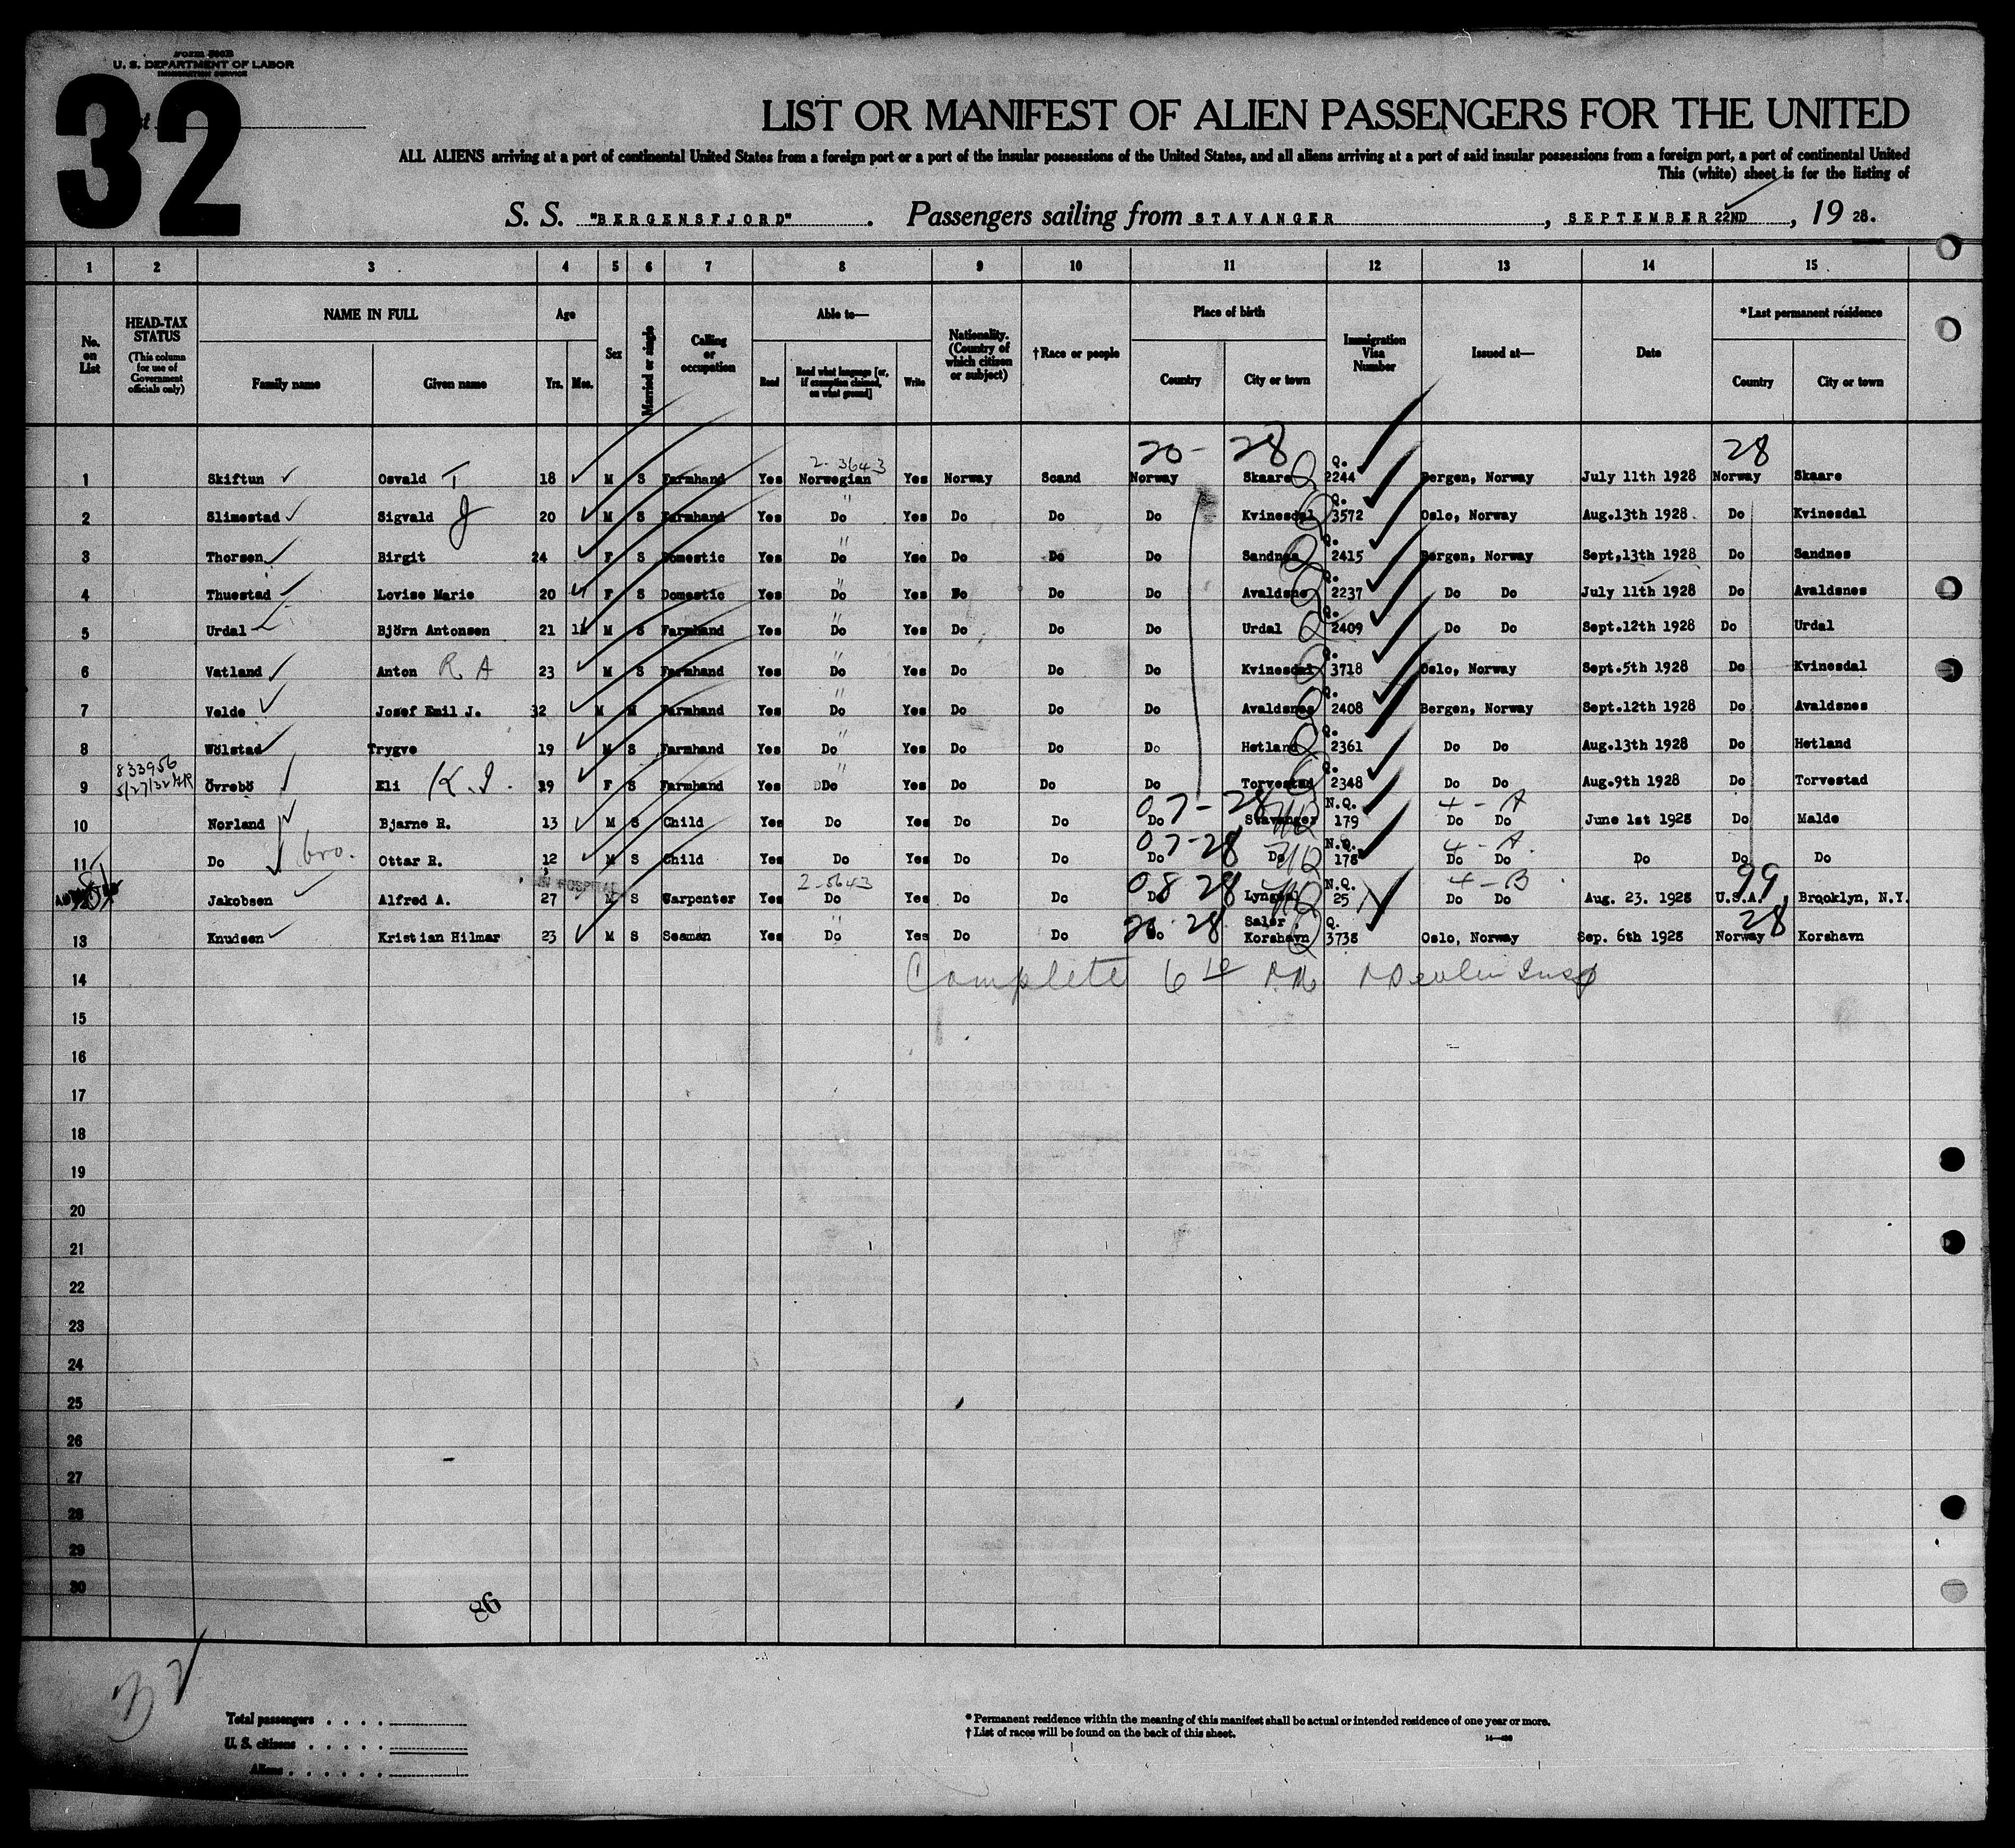 Form 500B
U. S. DEPARTMENT OF LABOR
IMMIGRATION SERVICE
32
LIST OR MANIFEST OF ALIEN PASSENGERS FOR THE UNITED
ALL ALIENS arriving at a port of continental United States from a foreign port or a port of the insular possessions of the United States, and all aliens arriving at a port of said insular possessions from a foreign port, a port of continental United
This (white) sheet is for the listing of
S. S. "BERGENSFJORD". Passengers sailing from STAVANGER, SEPTEMBER 22ND, 19 28.
1 2 3 4 5 6 7 8 9 10 11 12 13 14 15
No. on List
HEAD-TAX STATUS (This column for use of Government officials only)
NAME IN FULL
Family name Given name
Age
Yrs. Mos.
Sex
Married or single
Calling or occupation
Able to—
Read Read what language [or, if exemption claimed, on what ground] Write
Nationality. (Country of which citizen or subject)
†Race or people
Place of birth
Country City or town
Immigration Visa Number
Issued at—
Date
*Last permanent residence
Country City or town
20- 28 28
2-3643 Q.
1 Skiftun Osvald T 18 M S Farmhand Yes Norwegian Yes Norway Scand Norway Skaare Q 2244 Bergen, Norway July 11th 1928 Norway Skaare
2 Slimestad Sigvald J 20 M S Farmhand Yes Do " Yes Do Do Do Kvinesdal Q Q. 3572 Oslo, Norway Aug.13th 1928 Do Kvinesdal
3 Thorsen Birgit 24 F S Domestic Yes Do " Yse Do Do Do Sandnes Q Q. 2415 Bergen, Norway Sept.13th 1928 Do Sandnes
4 Thuestad Lovise Marie 20 F S Domestic Yes Do " Yes Do Do Do Avaldsne Q Q. 2237 Do Do July 11th 1928 Do Avaldsnes
5 Urdal Björn Antonsen 21 11 M S Farmhand Yes Do " Yes Do Do Do Urdal Q Q. 2409 Do Do Sept.12th 1928 Do Urdal
6 Vatland Anton R A 23 M S Farmhand Yes Do " Yes Do Do Do Kvinesdal Q Q. 3718 Oslo, Norway Sept.5th 1928 Do Kvinesdal
7 Velde Josef Emil J. 32 M M Farmhand Yes Do " Yes Do Do Do Avaldsnes Q Q. 2408 Bergen, Norway Sept.12th 1928 Do Avaldsnes
8 Wölstad Trygve 19 M S Farmhand Yes Do " Yes Do Do Do Hetland Q Q. 2361 Do Do Aug.13th 1928 Do Hetland
833956
5/27/32
9 Övrebö Eli K. I. 19 F S Farmhand Yes Do " Yes Do Do Do Torvestad Q Q. 2348 Do Do Aug.9th 1928 Do Torvestad
07-28 N.Q. 4-A
10 Norland Bjarne R. 13 M S Child Yes Do Yes Do Do Do Stavanger NQ 179 Do Do June 1st 1928 Do Malde
07-28 N.Q. 4-A.
11 Do bro. Ottar R. 12 M S Child Yes Do Yes Do Do Do Do NQ 178 Do Do Do Do Do
IN HOSPITAL 2-3643 08 28 N.Q. 4-B 99
Jakobsen Alfred A. 27 M S Carpenter Yes Do Yes Do Do Do Lyngdal NQ 25 Do Do Aug. 23. 1928 U.S.A., Brooklyn, N.Y.
20-28 28
13 Knudsen Kristian Hilmar 23 M S Seaman Yes Do " Yes Do Do Do Korshavn Q Q. 3738 Oslo, Norway Sep. 6th 1928 Norway Korshavn
14 Complete 6
15
16
17
18
19
20
21
22
23
24
25
26
27
28
29
30
86
32
Total passengers
U. S. citizens
Aliens
* Permanent residence within the meaning of this manifest shall be actual or intended residence of one year or more.
† List of races will be found on the back of this sheet.